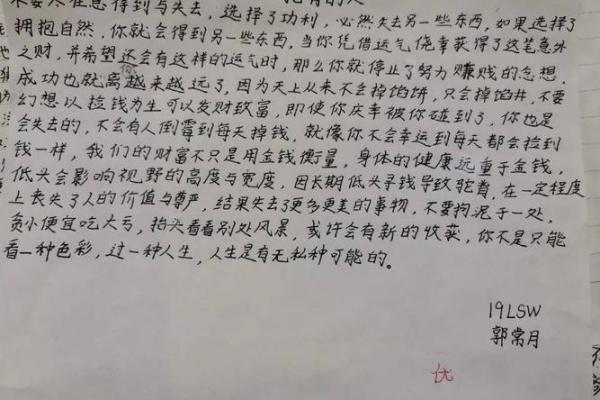 不要太在意得到与失去，选择了功利，必然失去另一些东西，如果选择了
拥抱自然，你就会得到另一些东西，当你凭借运气侥幸获得了这笔意外
之财，并希望还会有这样的运气时，那么你就停止了努力赚钱的念想，
成功也就离你越来越远了，因为天上从来不会掉馅饼，只会掉陷井，不要
幻想以捡钱为生可以发财致富，即使你庆幸被你碰到了，你也是
会失去的，不会有人倒霉到每天掉钱，就像你不会幸运到每天都会捡到
钱一样，我们的财富不只是用金钱衡量，身体的健康远重于金钱，
低头会影响视野的高度与宽度，因长期低头寻钱导致驼背，在一定程度
上丧失了人的价值与尊严，结果失去了更多更美的事物，不要拘泥于一处，
贪小便宜吃大亏，抬头看看别处风景，或许会有新的收获，你不是只能
看一种色彩，过一种人生，人生是有无私种可能的。
19LSW
郭常月
优